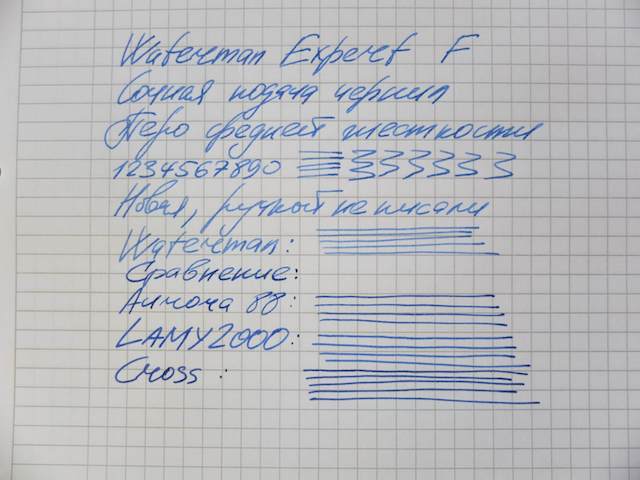 Waterman Expert F
Сочная подача чернил
Перо средней жесткости
1234567890
Новая, ручкой не писали
Waterman:
Сравнение:
Аиноча 88:
LAMY2000:
Cross :